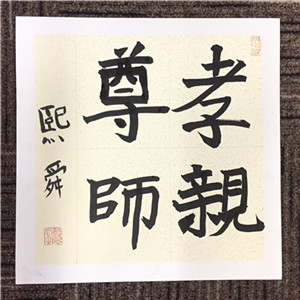 孝親
尊師
熙舜